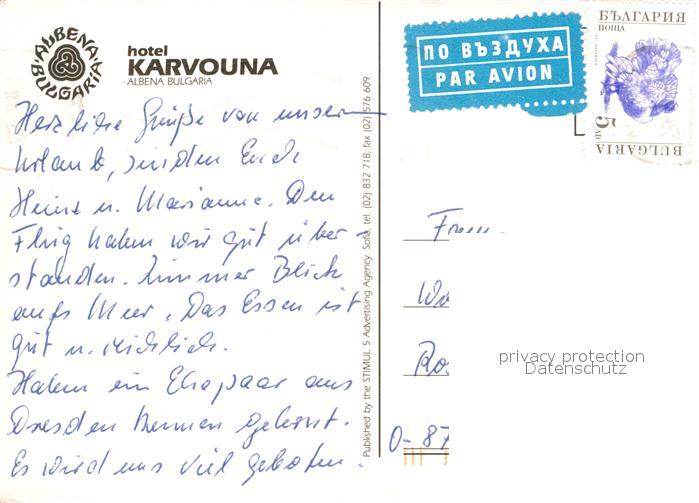 ALBENA
BULGARIA
hotel
KARVOUNA
ALBENA BULGARIA
Herzliche Grüße von unserem
Urlaub, senden Euch
Heinz u. Marianne. Den
Flug haben wir gut über-
standen. Zimmer Blick
aufs Meer. Das Essen ist
gut u. reichlich.
Haben ein Ehepaar aus
Dresden kennen gelernt.
Es wird uns viel geboten.
Published by the STIMUL 5 Advertising Agency, Sofia, tel. (02) 832 718; fax (02) 576 609
ПО ВЪЗДУХА
PAR AVION
БЪЛГАРИЯ
ПОЩА
5 ЛВ
BULGARIA
O-87
privacy protection
Datenschutz